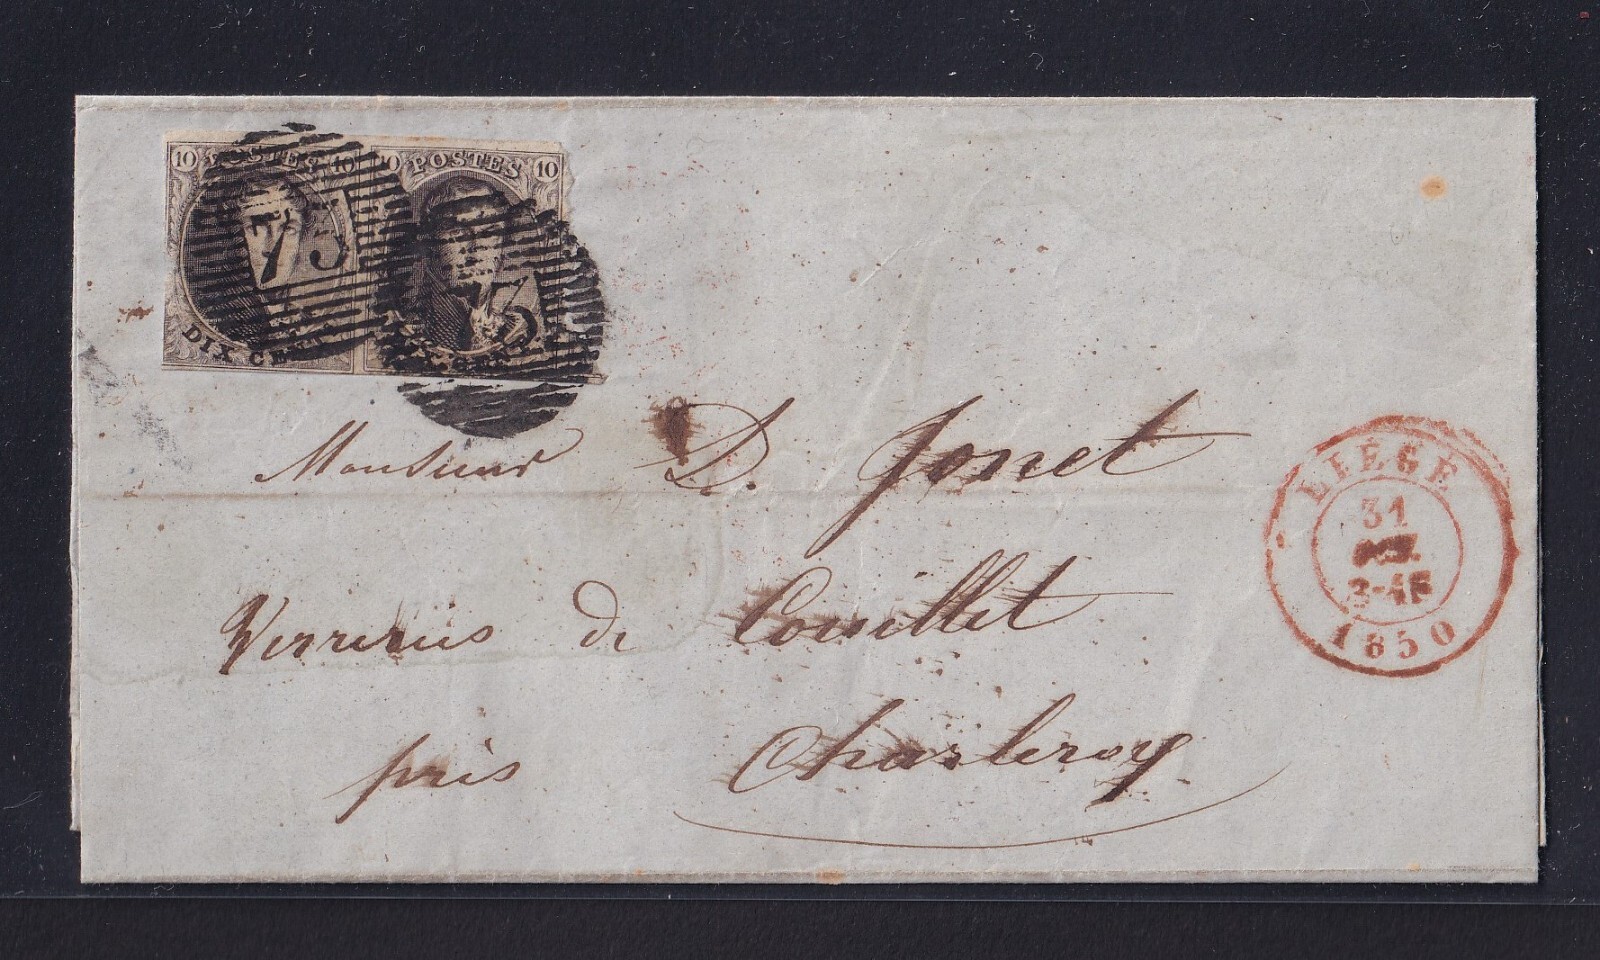 10 POSTES 10
POSTES 10
73
73
DIX CENT
Monsieur D. Jonet
Verreries de Couillet
près Charleroy
LIÉGE
31
OCT.
1850